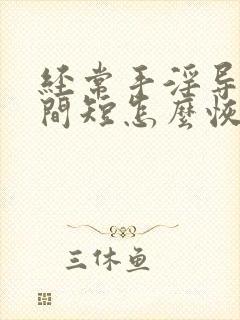 经常手淫导
間短怎麼恢
三休鱼